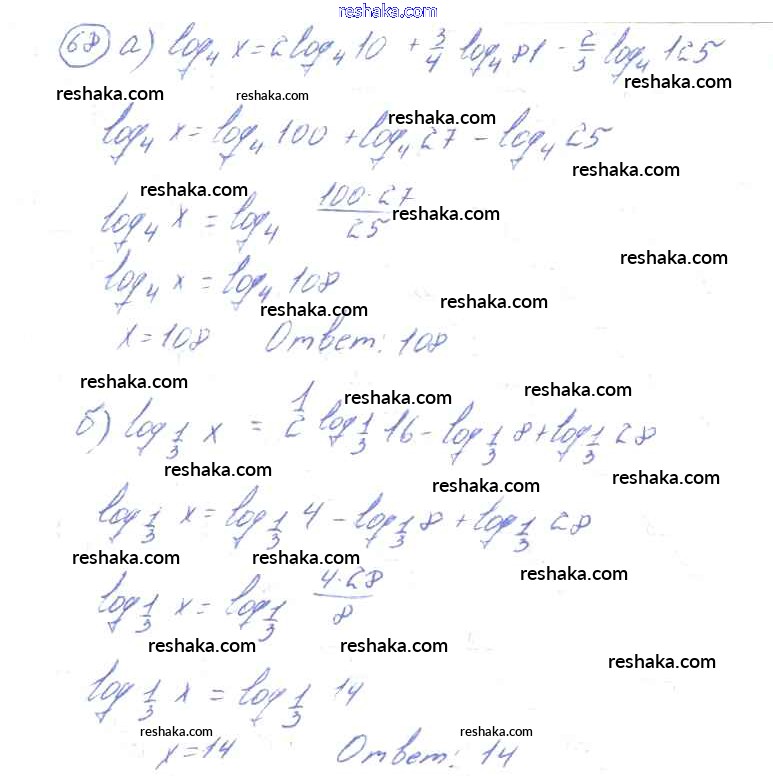 reshaka.com
68 а) log₄ x = 2 log₄ 10 + 3/4 log₄ 81 - 2/3 log₄ 125
reshaka.com
reshaka.com
reshaka.com
reshaka.com
log₄ x = log₄ 100 + log₄ 27 - log₄ 25
reshaka.com
reshaka.com
log₄ x = log₄ 100·27/25
reshaka.com
reshaka.com
log₄ x = log₄ 108
reshaka.com
reshaka.com
x = 108 Ответ: 108
reshaka.com
reshaka.com
reshaka.com
б) log_1/3 x = 1/2 log_1/3 16 - log_1/3 8 + log_1/3 28
reshaka.com
reshaka.com
reshaka.com
log_1/3 x = log_1/3 4 - log_1/3 8 + log_1/3 28
reshaka.com
reshaka.com
reshaka.com
log_1/3 x = log_1/3 4·28/8
reshaka.com
reshaka.com
reshaka.com
log_1/3 x = log_1/3 14
reshaka.com
reshaka.com
x = 14 Ответ: 14